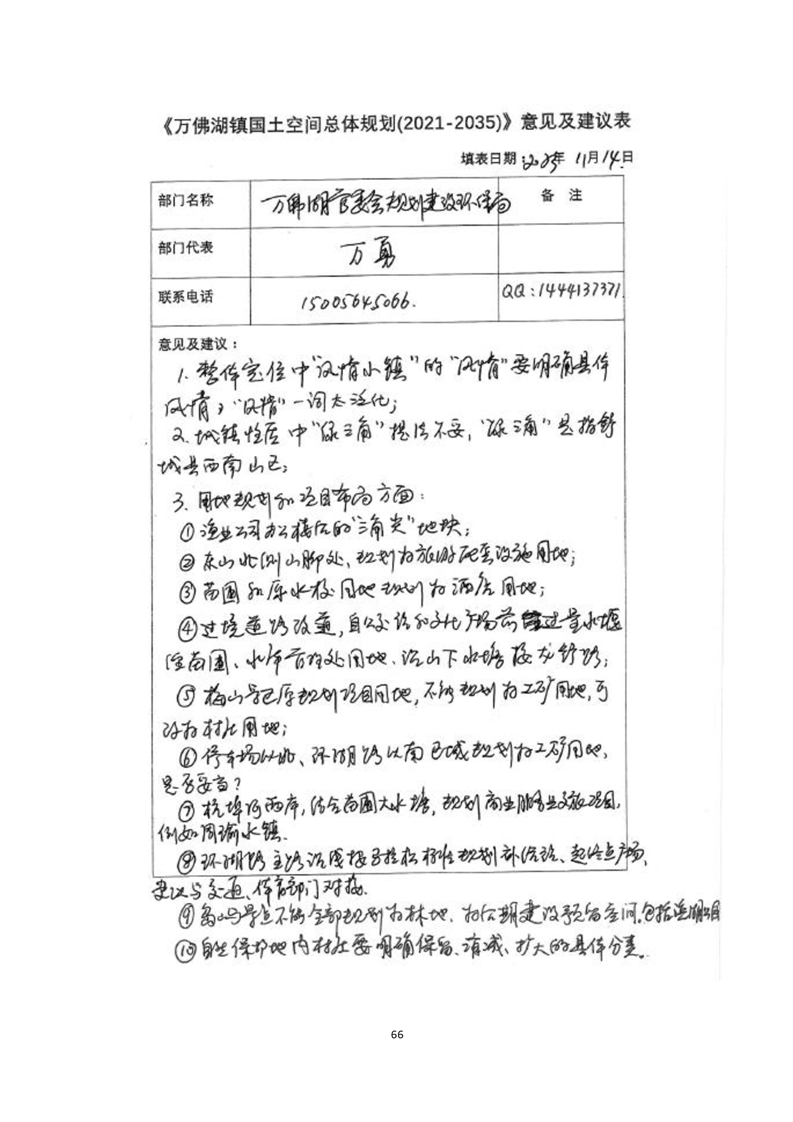 《万佛湖镇国土空间总体规划(2021-2035)》意见及建议表
填表日期:2023年 11月14日
部门名称 万佛湖管委会规划建设环保局 备 注
部门代表 万勇
联系电话 15005645066. QQ:1444137371
意见及建议:
1. 整体定位中“风情小镇”的“风情”要明确具体
风情,“风情”一词太泛化;
2. 城镇性质中“绿三角”提法不妥,“绿三角”是指舒
城县西南山区;
3. 用地规划和项目布局方面:
①渔业公司办公楼后的“三角尖”地块;
②东山北侧山脚处、规划为旅游配套设施用地;
③苗圃和原水校用地规划为酒店用地;
④过境道路改道,自公交站和文化广场前 过量水堰
经苗圃、水库管理处用地、沿山下水塘接龙舒路;
⑤梅山号已原规划项目用地,不能规划为工矿用地,可
改为村庄用地;
⑥停车场以北、环湖路以南区域规划为工矿用地,
是否妥当?
⑦杭埠河两岸,结合苗圃大水塘,规划商业服务业文旅项目,
例如周瑜水镇.
⑧环湖路主路沿线按马拉松标准规划补给站、起终点广场,
建议与交通、体育部门对接.
⑨ 岛屿景点不能全部规划为林地,为后期建设预留空间,包括
⑩自然保护地内村庄要明确保留、消减、扩大的具体分类。
66